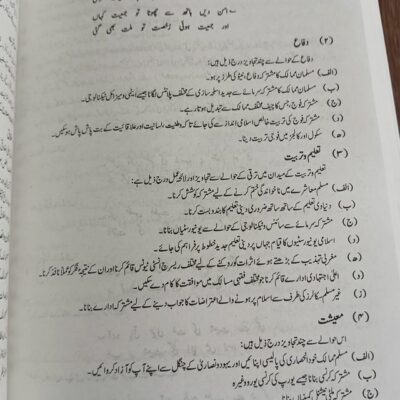 امن دیں ہاتھ سے چھوٹا تو جمعیت کہاں
اور جمعیت ہوئی رخصت تو ملت بھی گئی
(۲) دفاع
دفاع کے حوالے سے چند تجاویز درج ذیل ہیں:
(الف) مسلمان ممالک کا مشترکہ دفاع، نیٹو کی طرز پر ہو۔
(ب) مسلمان ممالک کا مشترکہ سرمائے سے جدید اسلحہ سازی کے مختلف پلانٹس لگانا جیسے ایٹمی و میزائل ٹیکنالوجی۔
(ج) مشترکہ فوج، جس کا چیف مختلف ممالک سے تبدیل ہوتا رہے۔
(د) مشترکہ فوج کی تربیت خالص اسلامی انداز سے کی جائے تاکہ وطنیت، لسانیت اور علاقائیت کے بت پاش پاش ہو سکیں۔
(ھ) سکول اور کالجز میں فوجی تربیت دینا۔
(۳) تعلیم و تربیت
تعلیم و تربیت کے میدان میں ترقی کے حوالے سے تجاویز اور لائحہ عمل درج ذیل ہے:
(الف) مسلم معاشرے میں ناخواندگی ختم کرنے کے لیے مشترکہ کوشش کرنا۔
(ب) دنیاوی تعلیم کے ساتھ ساتھ ضروری دینی تعلیم کا بندوبست کرنا۔
(ج) مشترکہ سرمائے سے سائنس و ٹیکنالوجی کے حوالے سے یونیورسٹیاں بنانا۔
(د) اسلامی یونیورسٹیوں کا قیام جہاں پر دینی تعلیم جدید خطوط پر فراہم کی جائے۔
(ھ) مغربی تہذیب کے بڑھتے ہوئے اثرات کو روکنے کے لیے مختلف ریسرچ انسٹی ٹیوٹس قائم کرنا اور ان کے نتیجہ فکر کو عملاً نافذ کرنا۔
(و) اعلیٰ اجتہادی ادارے قائم کرنا جو مختلف فقہی مسالک میں موافقت کا کام دے سکیں۔
(ز) غیر مسلم سکالرز کی طرف سے اسلام پر ہونے والے اعتراضات کا جواب دینے کے لیے مشترکہ ادارے بنانا۔
(۴) معیشت
اس حوالے سے چند تجاویز درج ذیل ہیں:
(الف) مسلم ممالک خود انحصاری کی پالیسی اپنائیں اور یہود و نصاریٰ کے چنگل سے اپنے آپ کو آزاد کروائیں۔
(ب) مشترکہ کرنسی بنانا جیسے یورپ کی کرنسی یورو وغیرہ
(ج) مشترکہ ملٹی نیشنل کمپنیاں بنانا۔